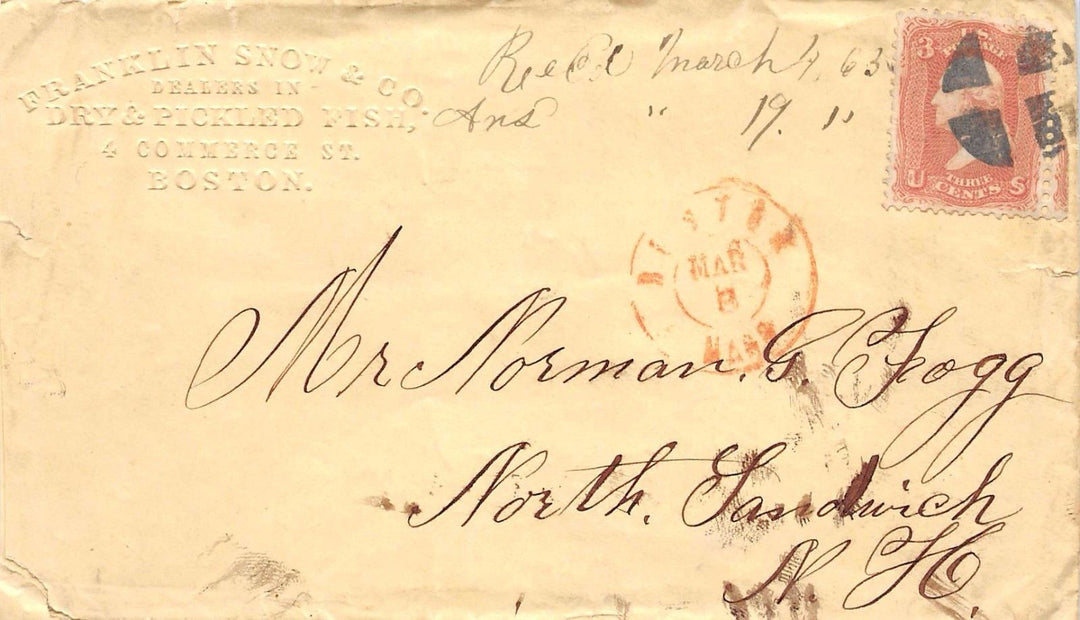 FRANKLIN SNOW & CO.
DEALERS IN
DRY & PICKLED FISH,
4 COMMERCE ST.
BOSTON.
Rec'd March 4, 63
Ans " 19. "
3 U.S. POSTAGE
THREE
U CENTS S
BOSTON
MAR
8
MASS
Mr Norman. G. Fogg
North. Sandwich
N. H.